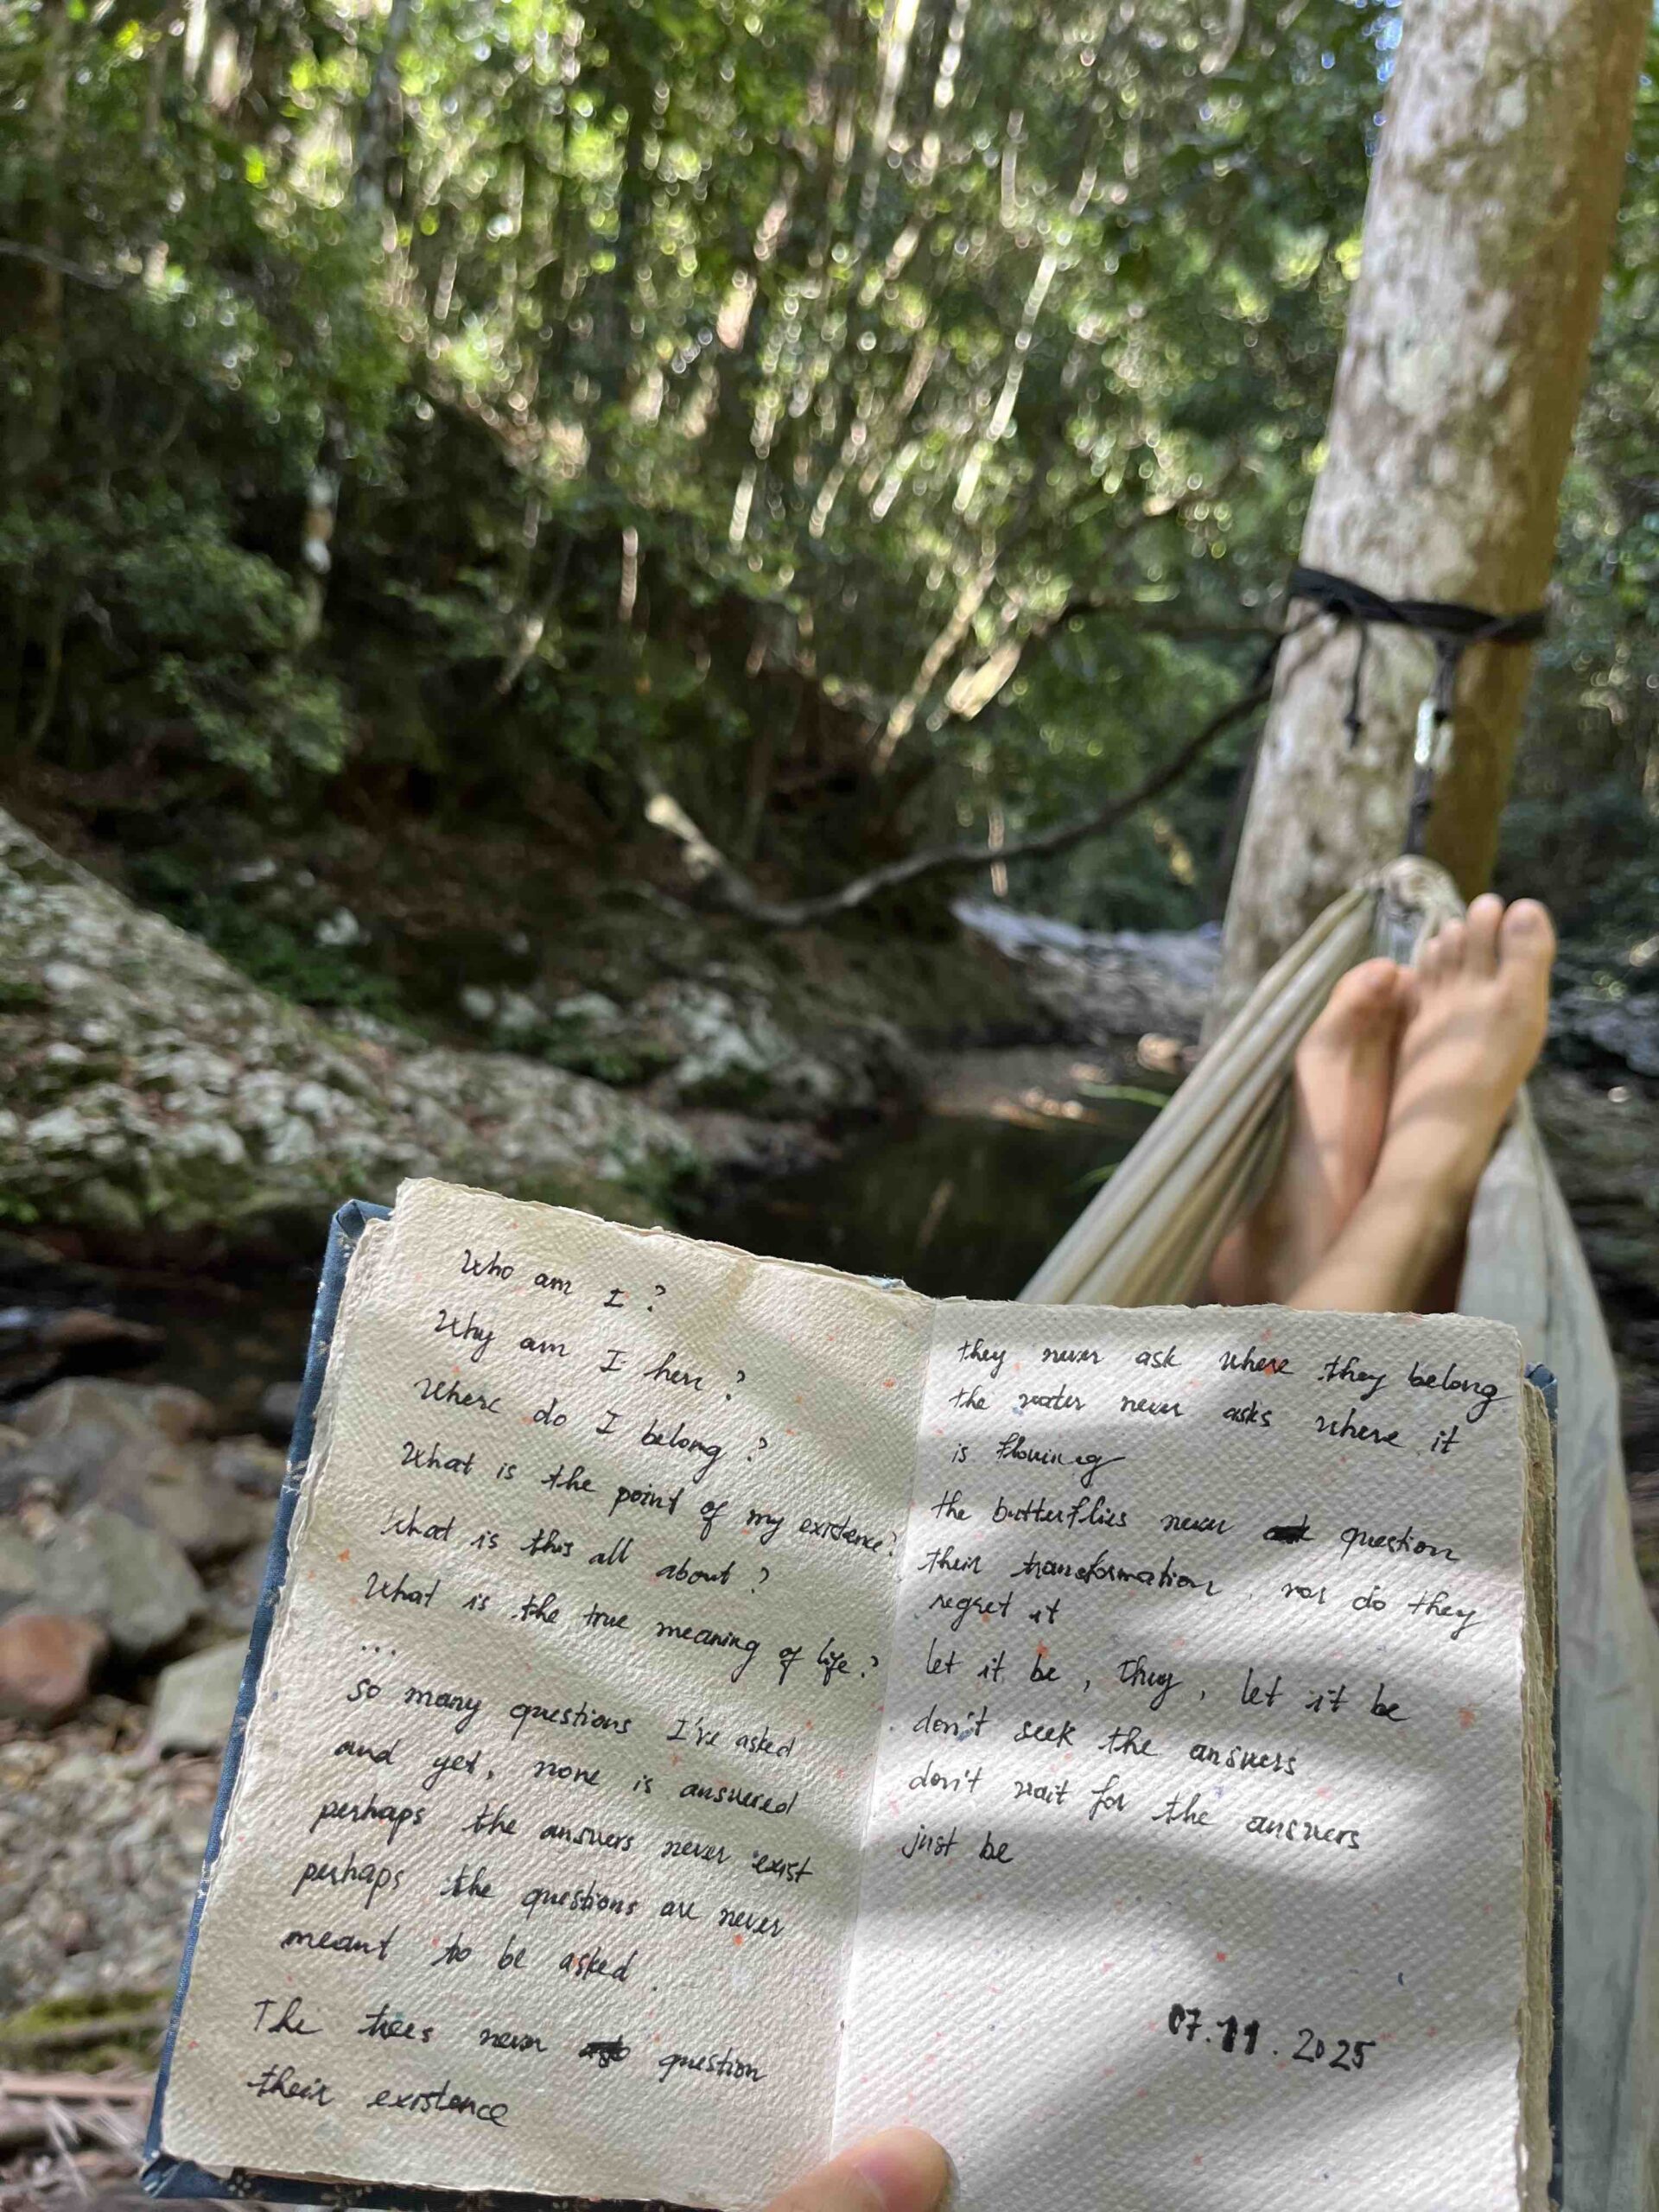 Who am I?
Why am I here?
Where do I belong?
What is the point of my existence?
What is this all about?
What is the true meaning of life?
...
so many questions I've asked
and yet, none is answered
perhaps the answers never exist
perhaps the questions are never
meant to be asked.
The trees never question
their existence
they never ask where they belong
the water never asks where it
is flowing
the butterflies never question
their transformation, nor do they
regret it
let it be, Thuy, let it be
don't seek the answers
don't wait for the answers
just be
07.11.2025